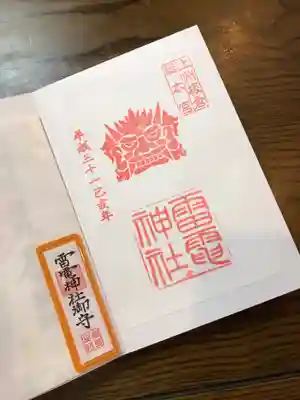 上州板倉
総本宮
平成三十一己亥年
雷電
神社
雷電神社御守